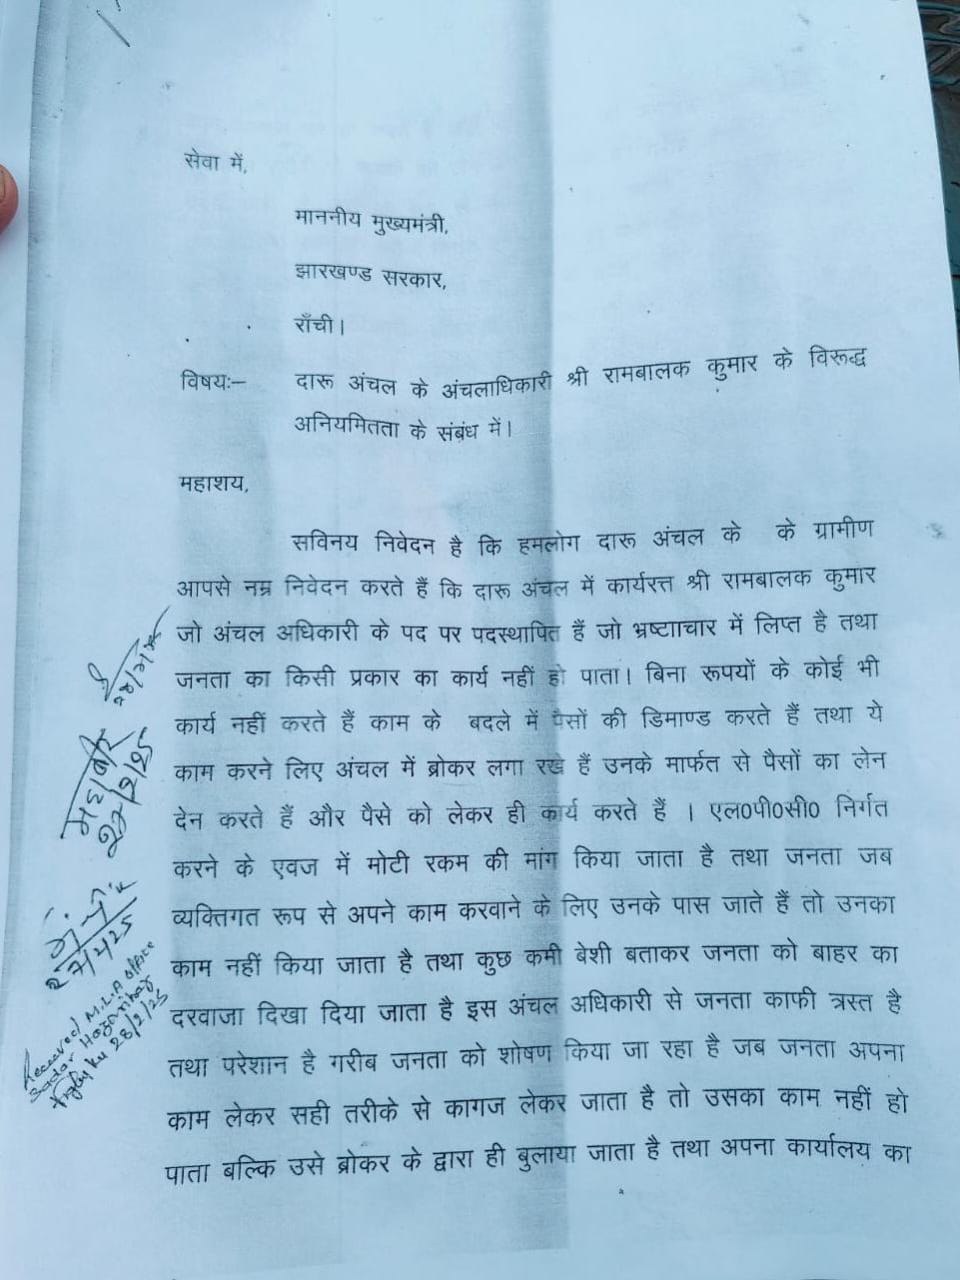 सेवा में,
माननीय मुख्यमंत्री,
झारखण्ड सरकार,
राँची।
विषयः– दारू अंचल के अंचलाधिकारी श्री रामबालक कुमार के विरूद्ध
अनियमितता के संबंध में।
महाशय,
सविनय निवेदन है कि हमलोग दारू अंचल के के ग्रामीण
आपसे नम्र निवेदन करते हैं कि दारू अंचल में कार्यरत्त श्री रामबालक कुमार
जो अंचल अधिकारी के पद पर पदस्थापित हैं जो भ्रष्टााचार में लिप्त है तथा
जनता का किसी प्रकार का कार्य नहीं हो पाता। बिना रूपयों के कोई भी
कार्य नहीं करते हैं काम के बदले में पैसों की डिमाण्ड करते हैं तथा ये
काम करने लिए अंचल में ब्रोकर लगा रखे हैं उनके मार्फत से पैसों का लेन
देन करते हैं और पैसे को लेकर ही कार्य करते हैं । एल0पी0सी0 निर्गत
करने के एवज में मोटी रकम की मांग किया जाता है तथा जनता जब
व्यक्तिगत रूप से अपने काम करवाने के लिए उनके पास जाते हैं तो उनका
काम नहीं किया जाता है तथा कुछ कमी बेशी बताकर जनता को बाहर का
दरवाजा दिखा दिया जाता है इस अंचल अधिकारी से जनता काफी त्रस्त है
तथा परेशान है गरीब जनता को शोषण किया जा रहा है जब जनता अपना
काम लेकर सही तरीके से कागज लेकर जाता है तो उसका काम नहीं हो
पाता बल्कि उसे ब्रोकर के द्वारा ही बुलाया जाता है तथा अपना कार्यालय का
महाबीर
Received M.L.A office
Sadar Hazaribag
28/2/25